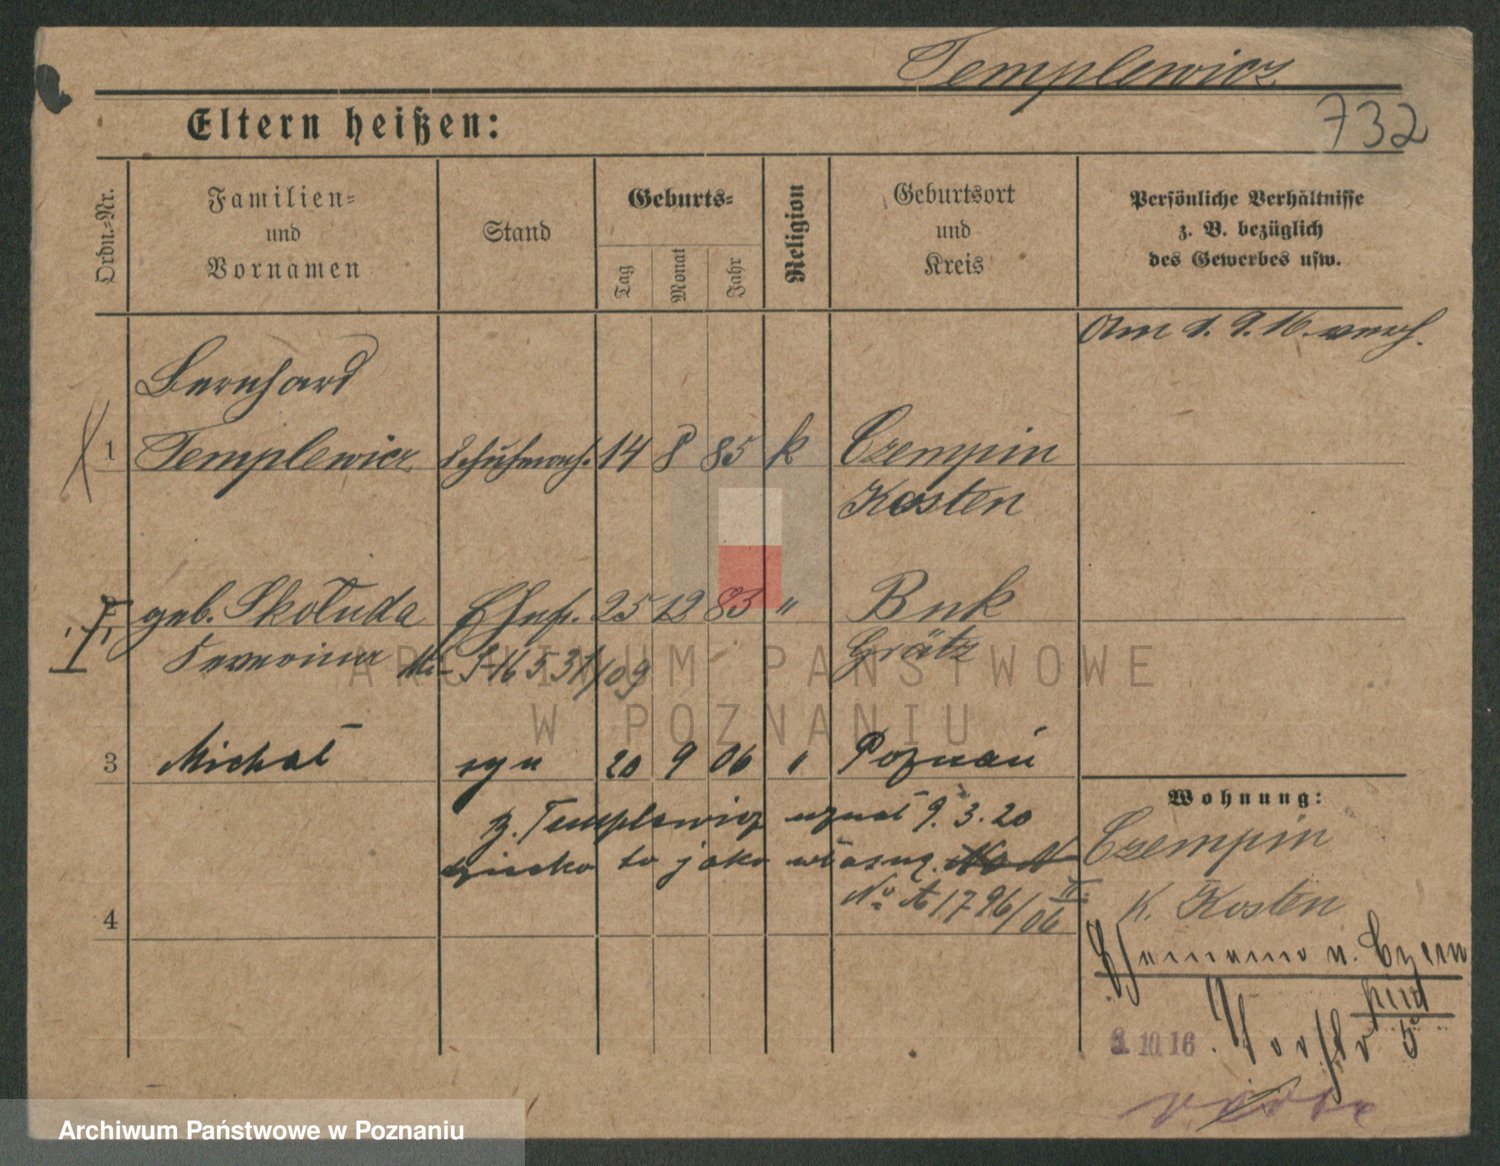 Templewicz
732
Eltern heißen:
Ordn.-Nr.
Familien-
und
Vornamen
Stand
Geburts-
Tag
Monat
Jahr
Religion
Geburtsort
und
Kreis
Persönliche Verhältnisse
z. B. bezüglich
des Gewerbes usw.
Am 1. 9. 16. verh.
Bernhard
1 Templewicz Schuhmach. 14 8 85 k Czempin
Kosten
2 geb. Skołuda Ehefr. 25 12 83 " Buk
Severina 531/09 Grätz
3 Michał syn 20 9 06 " Poznań
Templewicz uznał 9. 3. 20
dziecko to jako własne.
No A 1796/06
4
Wohnung:
Czempin
K. Kosten
n. Czem
pin
5
3. 10. 16
ARCHIWUM PAŃSTWOWE
W POZNANIU
Archiwum Państwowe w Poznaniu